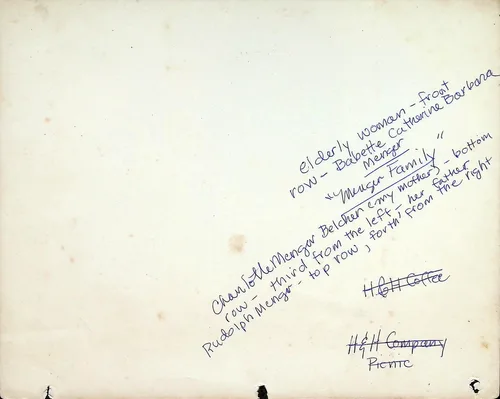 elderly woman - front
row - Babette Catherine Barbara
Menger
* "Menger Family"
Charlotte Menger Belcher (my mother) - bottom
row - third from the left - her father
Rudolph Menger - top row, forth from the right
H&H Coffee
H&H Company
Picnic